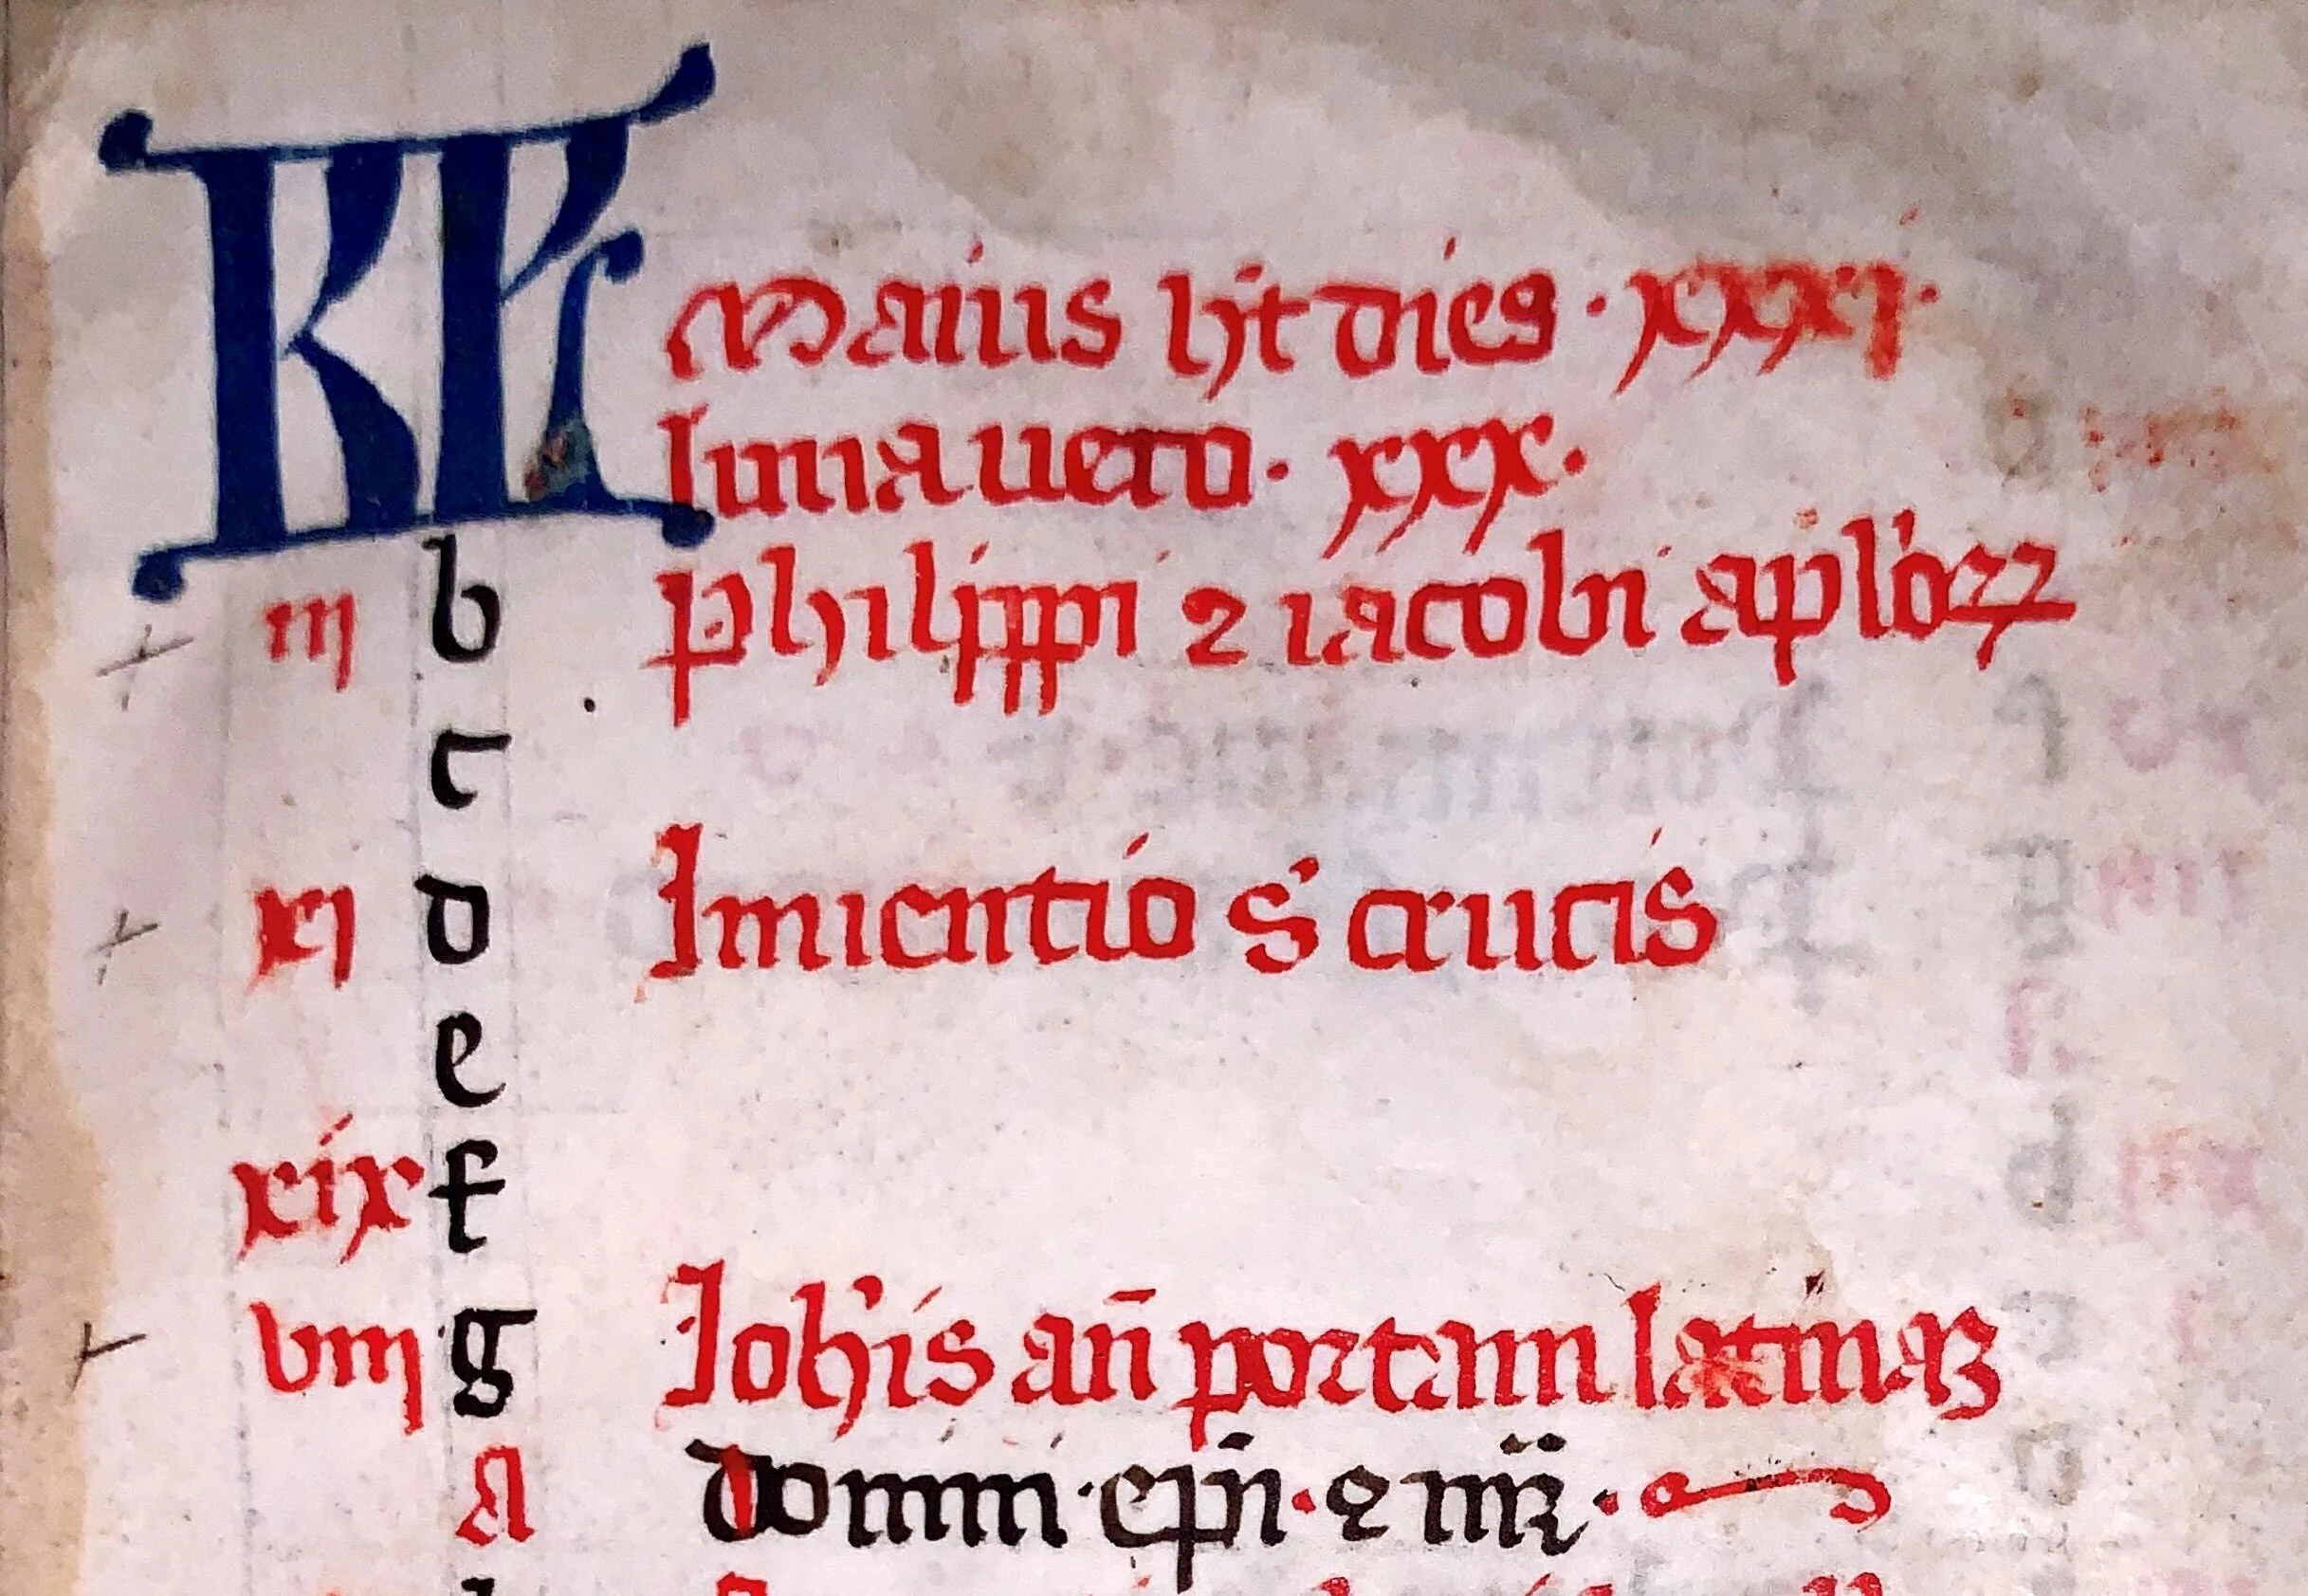 KL Maius ht dies · xxxi ·
luna uero · xxx ·
iii b Philippi ⁊ iacobi aplꝝ
c
xi d Inuentio s̕ crucis
e
xix f
viii g Ioh̕is an̄ portam latinaꝫ
A domini · epī · ⁊ mr̄ ·